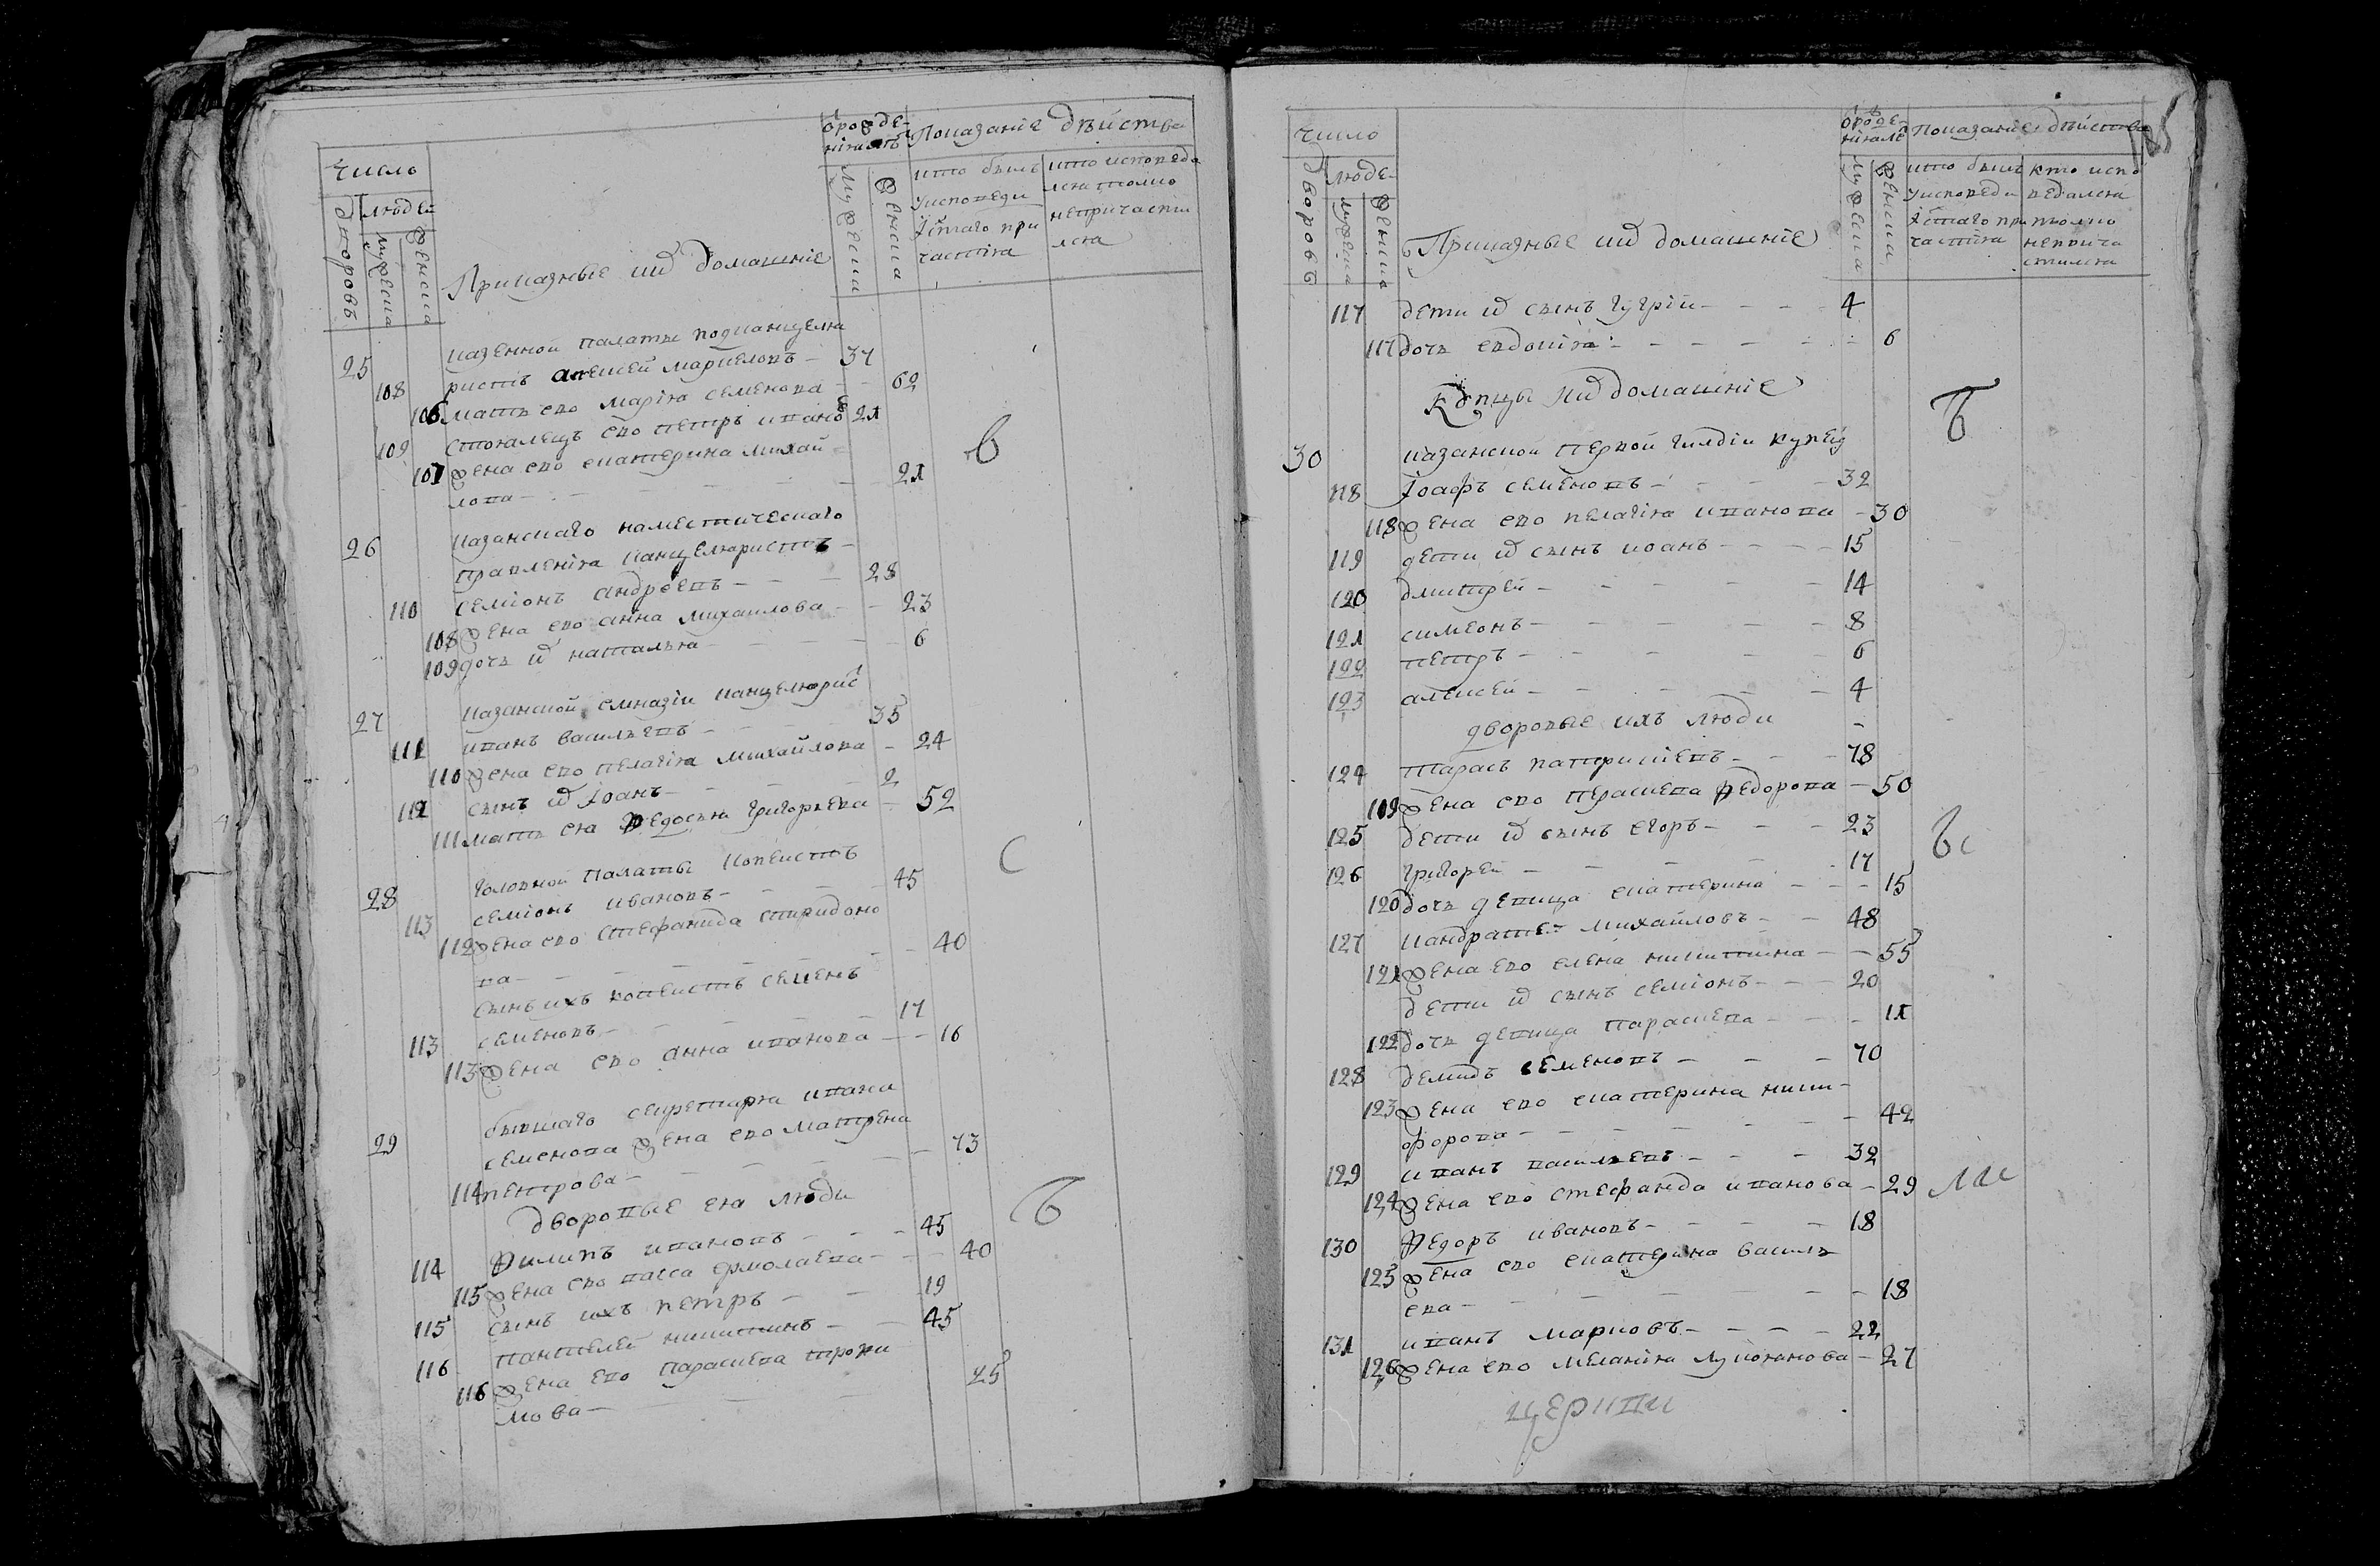 Число
Дворовъ
людей
мужеска
женска
Приказные и их домашніе
от рожденія лѣтъ
мужеска
женска
Показаніе дѣйства
кто былъ у исповеди и стаго причастія
кто исповедался токмо не причастился
25 казенной палаты подканцеля
108 ристъ алексей маркеловъ 37
106 мать ево марія семенова 62
109 его петръ ивано 21
107 жена ево екатерина михай
лова 21
в
26 казанскаго наместническаго
правленія канцеляристъ
110 семіонъ андреевъ 28
108 жена ево анна михаилова 23
109 дочь их наталья 6
27 казанской гимназіи канцелярис
111 иванъ васильевъ 35
110 жена ево пелагія михайлова 24
112 сынъ их Іоанъ 2
111 мать ея Федосья григорьева 52
с
28 палаты копеистъ
113 семіонъ ивановъ 45
112 жена ево стефанида спиридоно
ва 40
сынъ ихъ копеистъ семенъ
113 семеновъ 17
113 жена ево анна иванова 16
29 бывшаго секретаря ивана
семенова жена ево матрена
114 петрова 73
дворовые ея люди
в
114 Филипъ ивановъ 45
115 жена ево васса ермолаева 40
115 сынъ ихъ петръ 19
116 пантелей никитинъ 45
116 жена ево парасковья трофи
мова 25
Число
Дворовъ
людей
мужеска
женска
Приказные и их домашніе
от рожденія лѣтъ
мужеска
женска
Показаніе дѣйства
кто былъ у исповеди и стаго причастія
кто исповедался токмо не причастился
117 дети их сынъ гугрій 4
117 дочь евдокія 6
Купцы и их домашніе
в
30 казанской первой гилдіи купец
118 Іоафъ семеновъ 32
118 жена ево пелагія иванова 30
119 дети их сынъ иоанъ 15
120 дмитрей 14
121 симеонъ 8
122 петръ 6
123 алексей 4
дворовые ихъ люди
124 тарасъ патрикіевъ 78
109 жена ево парасковья Федорова 50
125 дети их сынъ егоръ 23
вс
126 григорей 17
120 дочь девица екатерина 15
127 кандратей михайловъ 48
121 жена ево елена никитина 55
дети их сынъ семіонъ 20
122 дочь девица парасковья 11
128 демидъ семеновъ 70
123 жена ево екатерина ники
форова 42
129 иванъ васильевъ 32
124 жена ево стефанида иванова 29
130 Федоръ ивановъ 18
125 жена ево екатерина василь
ева 18
131 иванъ марковъ 22
126 жена ево меланія лукоянова 27
церкви